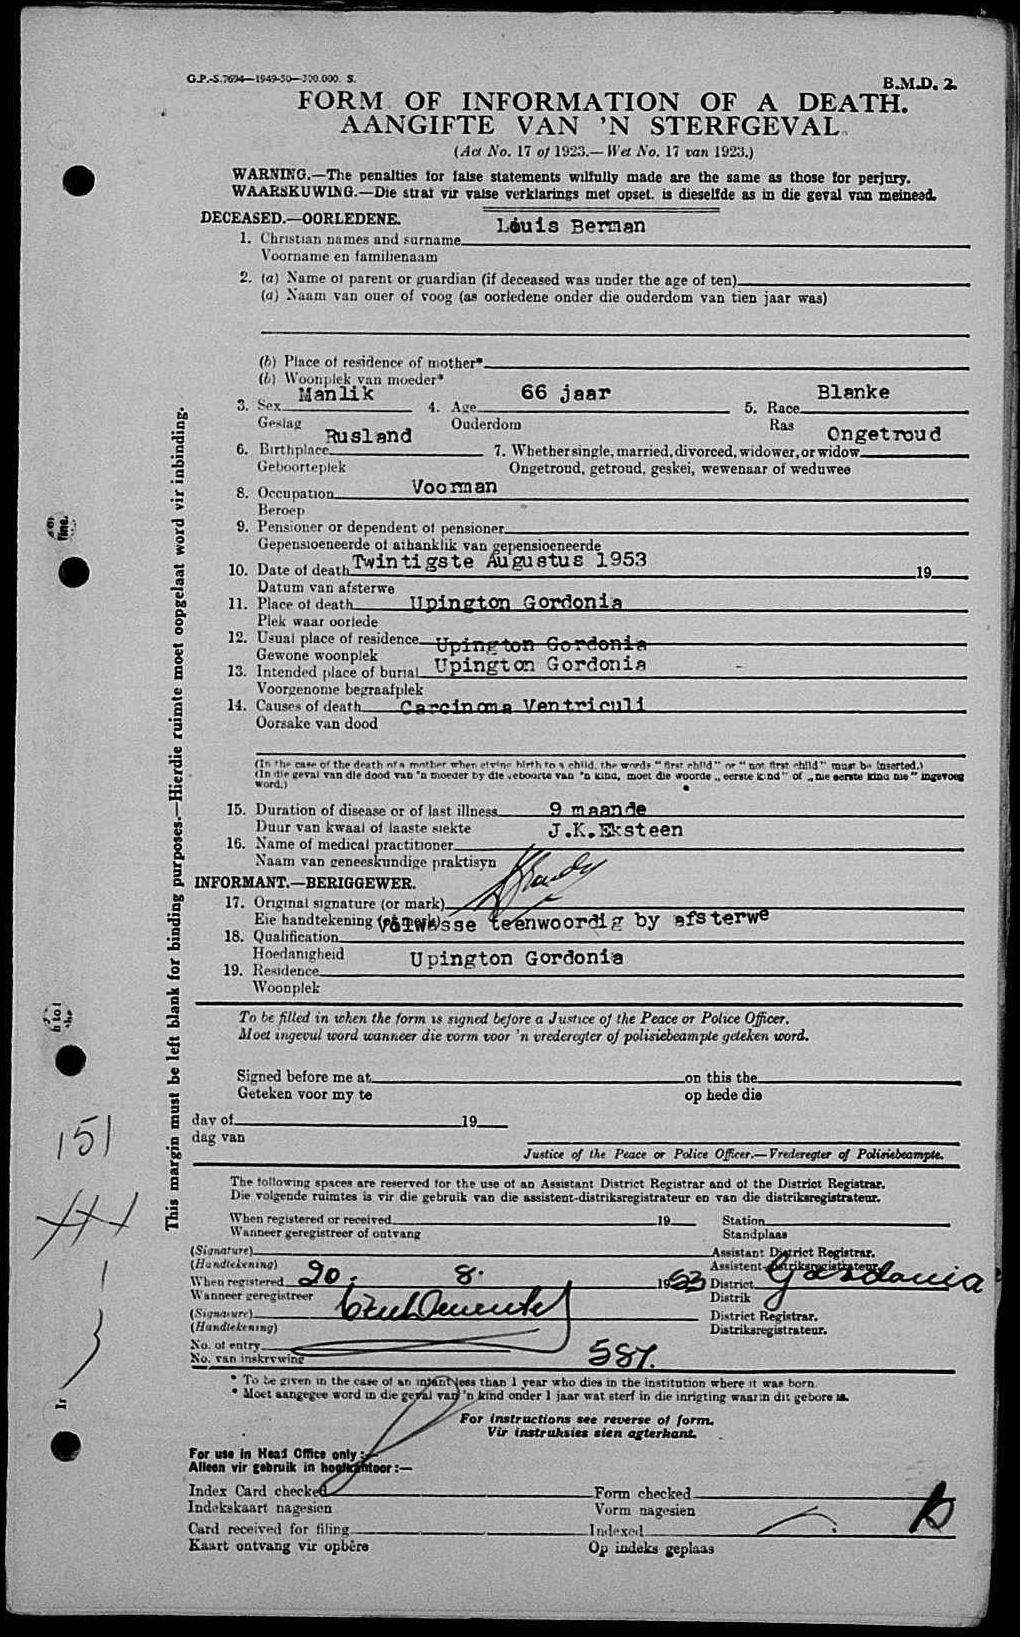 G.P.-S.7694—1949-50—300.000. S.
B.M.D. 2.
FORM OF INFORMATION OF A DEATH.
AANGIFTE VAN 'N STERFGEVAL.
(Act No. 17 of 1923.—Wet No. 17 van 1923.)
WARNING.—The penalties for false statements wilfully made are the same as those for perjury.
WAARSKUWING.—Die straf vir valse verklarings met opset. is dieselfde as in die geval van meineed.
DECEASED.—OORLEDENE.
Louis Berman
1. Christian names and surname
Voorname en familienaam
2. (a) Name of parent or guardian (if deceased was under the age of ten)
(a) Naam van ouer of voog (as oorledene onder die ouderdom van tien jaar was)
(b) Place of residence of mother*
(b) Woonplek van moeder*
Manlik 66 jaar Blanke
3. Sex 4. Age 5. Race
Geslag Ouderdom Ras
Rusland Ongetroud
6. Birthplace 7. Whether single, married, divorced, widower, or widow
Geboorteplek Ongetroud, getroud, geskei, wewenaar of weduwee
Voorman
8. Occupation
Beroep
9. Pensioner or dependent of pensioner
Gepensioeneerde of afhanklik van gepensioeneerde
10. Date of death Twintigste Augustus 1953 19
Datum van afsterwe
11. Place of death Upington Gordonia
Plek waar oorlede
12. Usual place of residence Upington Gordonia
Gewone woonplek
13. Intended place of burial Upington Gordonia
Voorgenome begraafplek
14. Causes of death Carcinoma Ventriculi
Oorsake van dood
(In the case of the death of a mother when giving birth to a child, the words "first child" or "not first child" must be inserted.)
(In die geval van die dood van 'n moeder by die geboorte van 'n kind, moet die woorde „eerste kind" of „nie eerste kind nie" ingevoeg word.)
15. Duration of disease or of last illness 9 maande
Duur van kwaal of laaste siekte
J.K.Eksteen
16. Name of medical practitioner
Naam van geneeskundige praktisyn
INFORMANT.—BERIGGEWER.
17. Original signature (or mark)
Eie handtekening (of merk)
Volwasse teenwoordig by afsterwe
18. Qualification
Hoedanigheid
Upington Gordonia
19. Residence
Woonplek
To be filled in when the form is signed before a Justice of the Peace or Police Officer.
Moet ingevul word wanneer die vorm voor 'n vrederegter of polisiebeampte geteken word.
Signed before me at on this the
Geteken voor my te op hede die
day of 19
dag van
Justice of the Peace or Police Officer.—Vrederegter of Polisiebeampte.
The following spaces are reserved for the use of an Assistant District Registrar and of the District Registrar.
Die volgende ruimtes is vir die gebruik van die assistent-distriksregistrateur en van die distriksregistrateur.
When registered or received 19 Station
Wanneer geregistreer of ontvang Standplaas
(Signature) Assistant District Registrar.
(Handtekening) Assistent-distriksregistrateur.
When registered 20. 8. 1953 District Gordonia
Wanneer geregistreer Distrik
(Signature) District Registrar.
(Handtekening) Distriksregistrateur.
No. of entry 587.
No. van inskrywing
* To be given in the case of an infant less than 1 year who dies in the institution where it was born.
* Moet aangegee word in die geval van 'n kind onder 1 jaar wat sterf in die inrigting waarin dit gebore is.
For instructions see reverse of form.
Vir instruksies sien agterkant.
For use in Head Office only:—
Alleen vir gebruik in hoofkantoor:—
Index Card checked Form checked
Indekskaart nagesien Vorm nagesien
Card received for filing Indexed
Kaart ontvang vir opbêre Op indeks geplaas
This margin must be left blank for binding purposes.—Hierdie ruimte moet oopgelaat word vir inbinding.
151